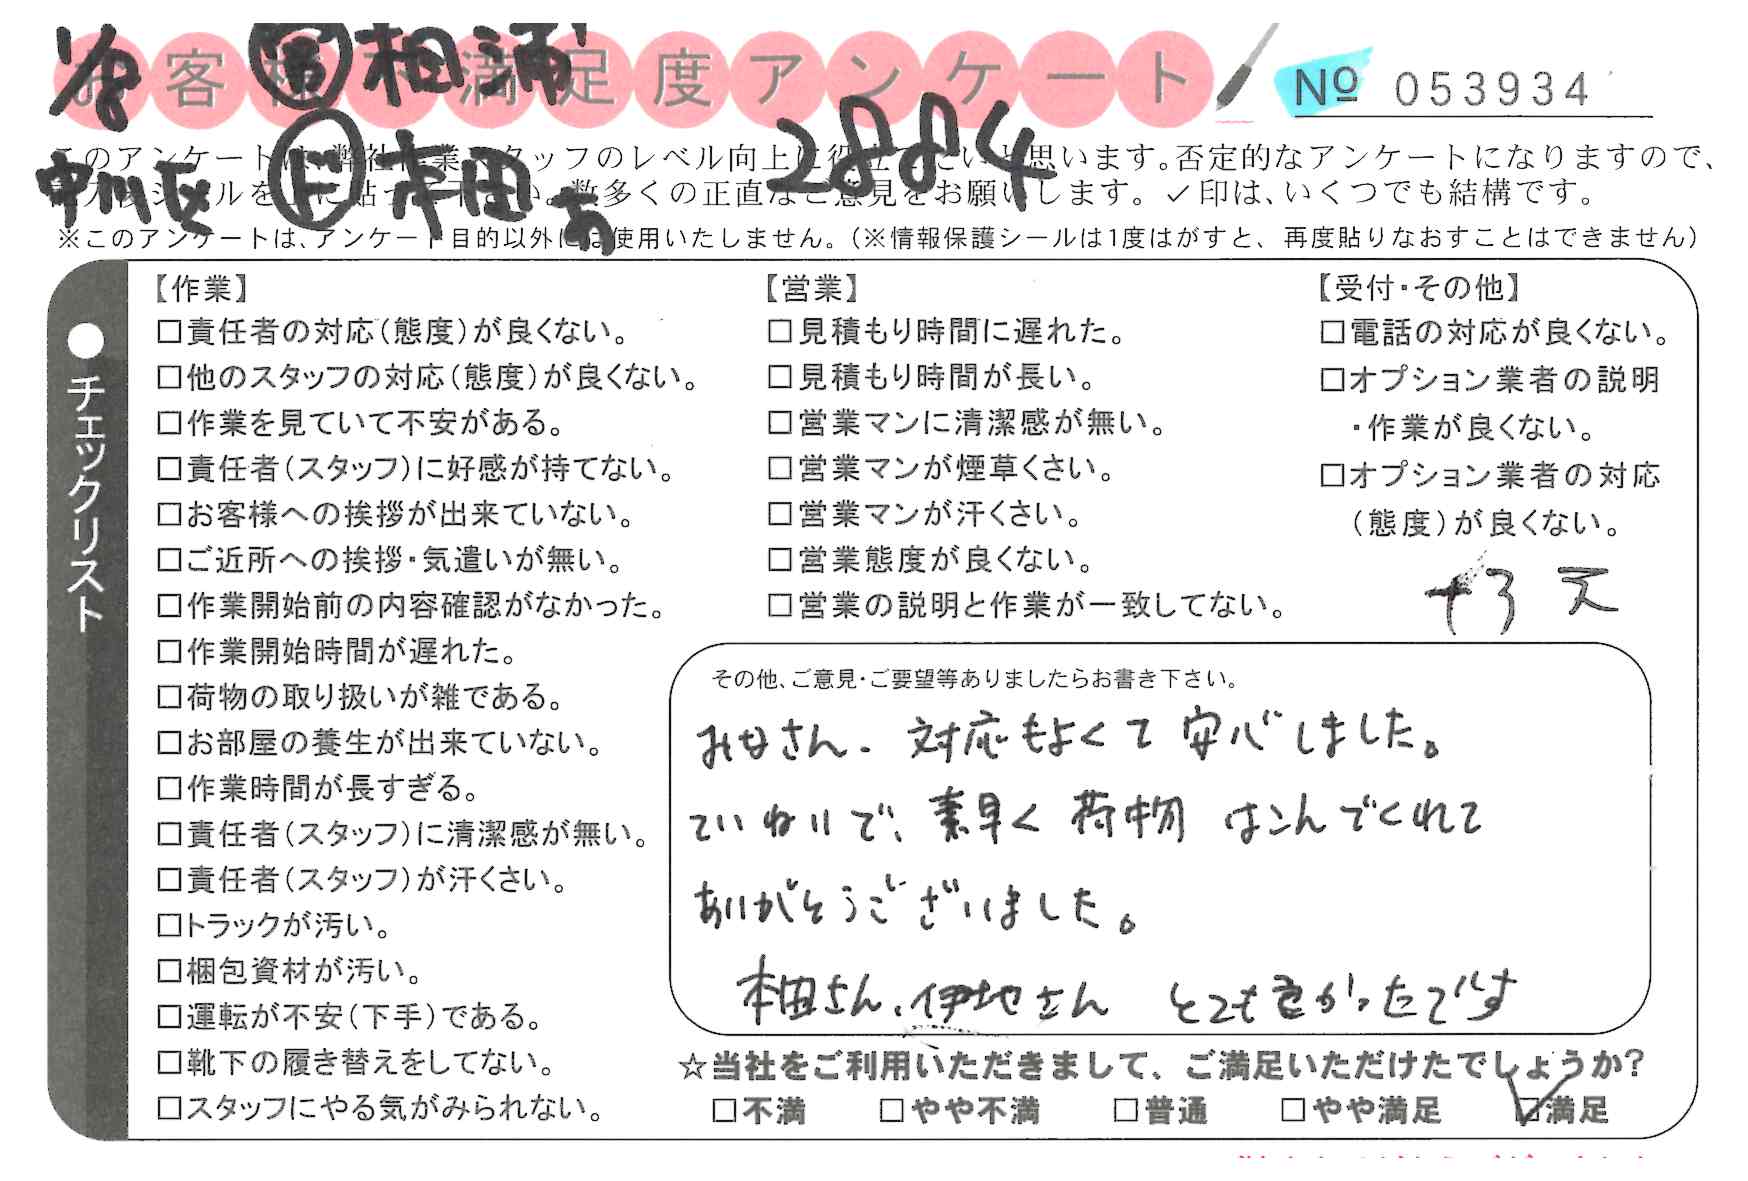 お客様不満足度アンケート
No 053934
1/8 営 相浦
中川区 ド 本田 あ 2884
このアンケートは、弊社作業スタッフのレベル向上に役立てたいと思います。否定的なアンケートになりますので、
記入後シールを上に貼って下さい。数多くの正直なご意見をお願いします。✓印は、いくつでも結構です。
※このアンケートは、アンケート目的以外には使用いたしません。(※情報保護シールは1度はがすと、再度貼りなおすことはできません)
●チェックリスト
【作業】
□責任者の対応(態度)が良くない。
□他のスタッフの対応(態度)が良くない。
□作業を見ていて不安がある。
□責任者(スタッフ)に好感が持てない。
□お客様への挨拶が出来ていない。
□ご近所への挨拶・気遣いが無い。
□作業開始前の内容確認がなかった。
□作業開始時間が遅れた。
□荷物の取り扱いが雑である。
□お部屋の養生が出来ていない。
□作業時間が長すぎる。
□責任者(スタッフ)に清潔感が無い。
□責任者(スタッフ)が汗くさい。
□トラックが汚い。
□梱包資材が汚い。
□運転が不安(下手)である。
□靴下の履き替えをしてない。
□スタッフにやる気がみられない。
【営業】
□見積もり時間に遅れた。
□見積もり時間が長い。
□営業マンに清潔感が無い。
□営業マンが煙草くさい。
□営業マンが汗くさい。
□営業態度が良くない。
□営業の説明と作業が一致してない。
【受付・その他】
□電話の対応が良くない。
□オプション業者の説明
・作業が良くない。
□オプション業者の対応
(態度)が良くない。
その他、ご意見・ご要望等ありましたらお書き下さい。
お母さん、対応もよくて安心しました。
ていねいで、素早く荷物はこんでくれて
ありがとうございました。
本田さん、伊地さん とても良かったです
☆当社をご利用いただきまして、ご満足いただけたでしょうか?
□不満 □やや不満 □普通 □やや満足 ☑満足